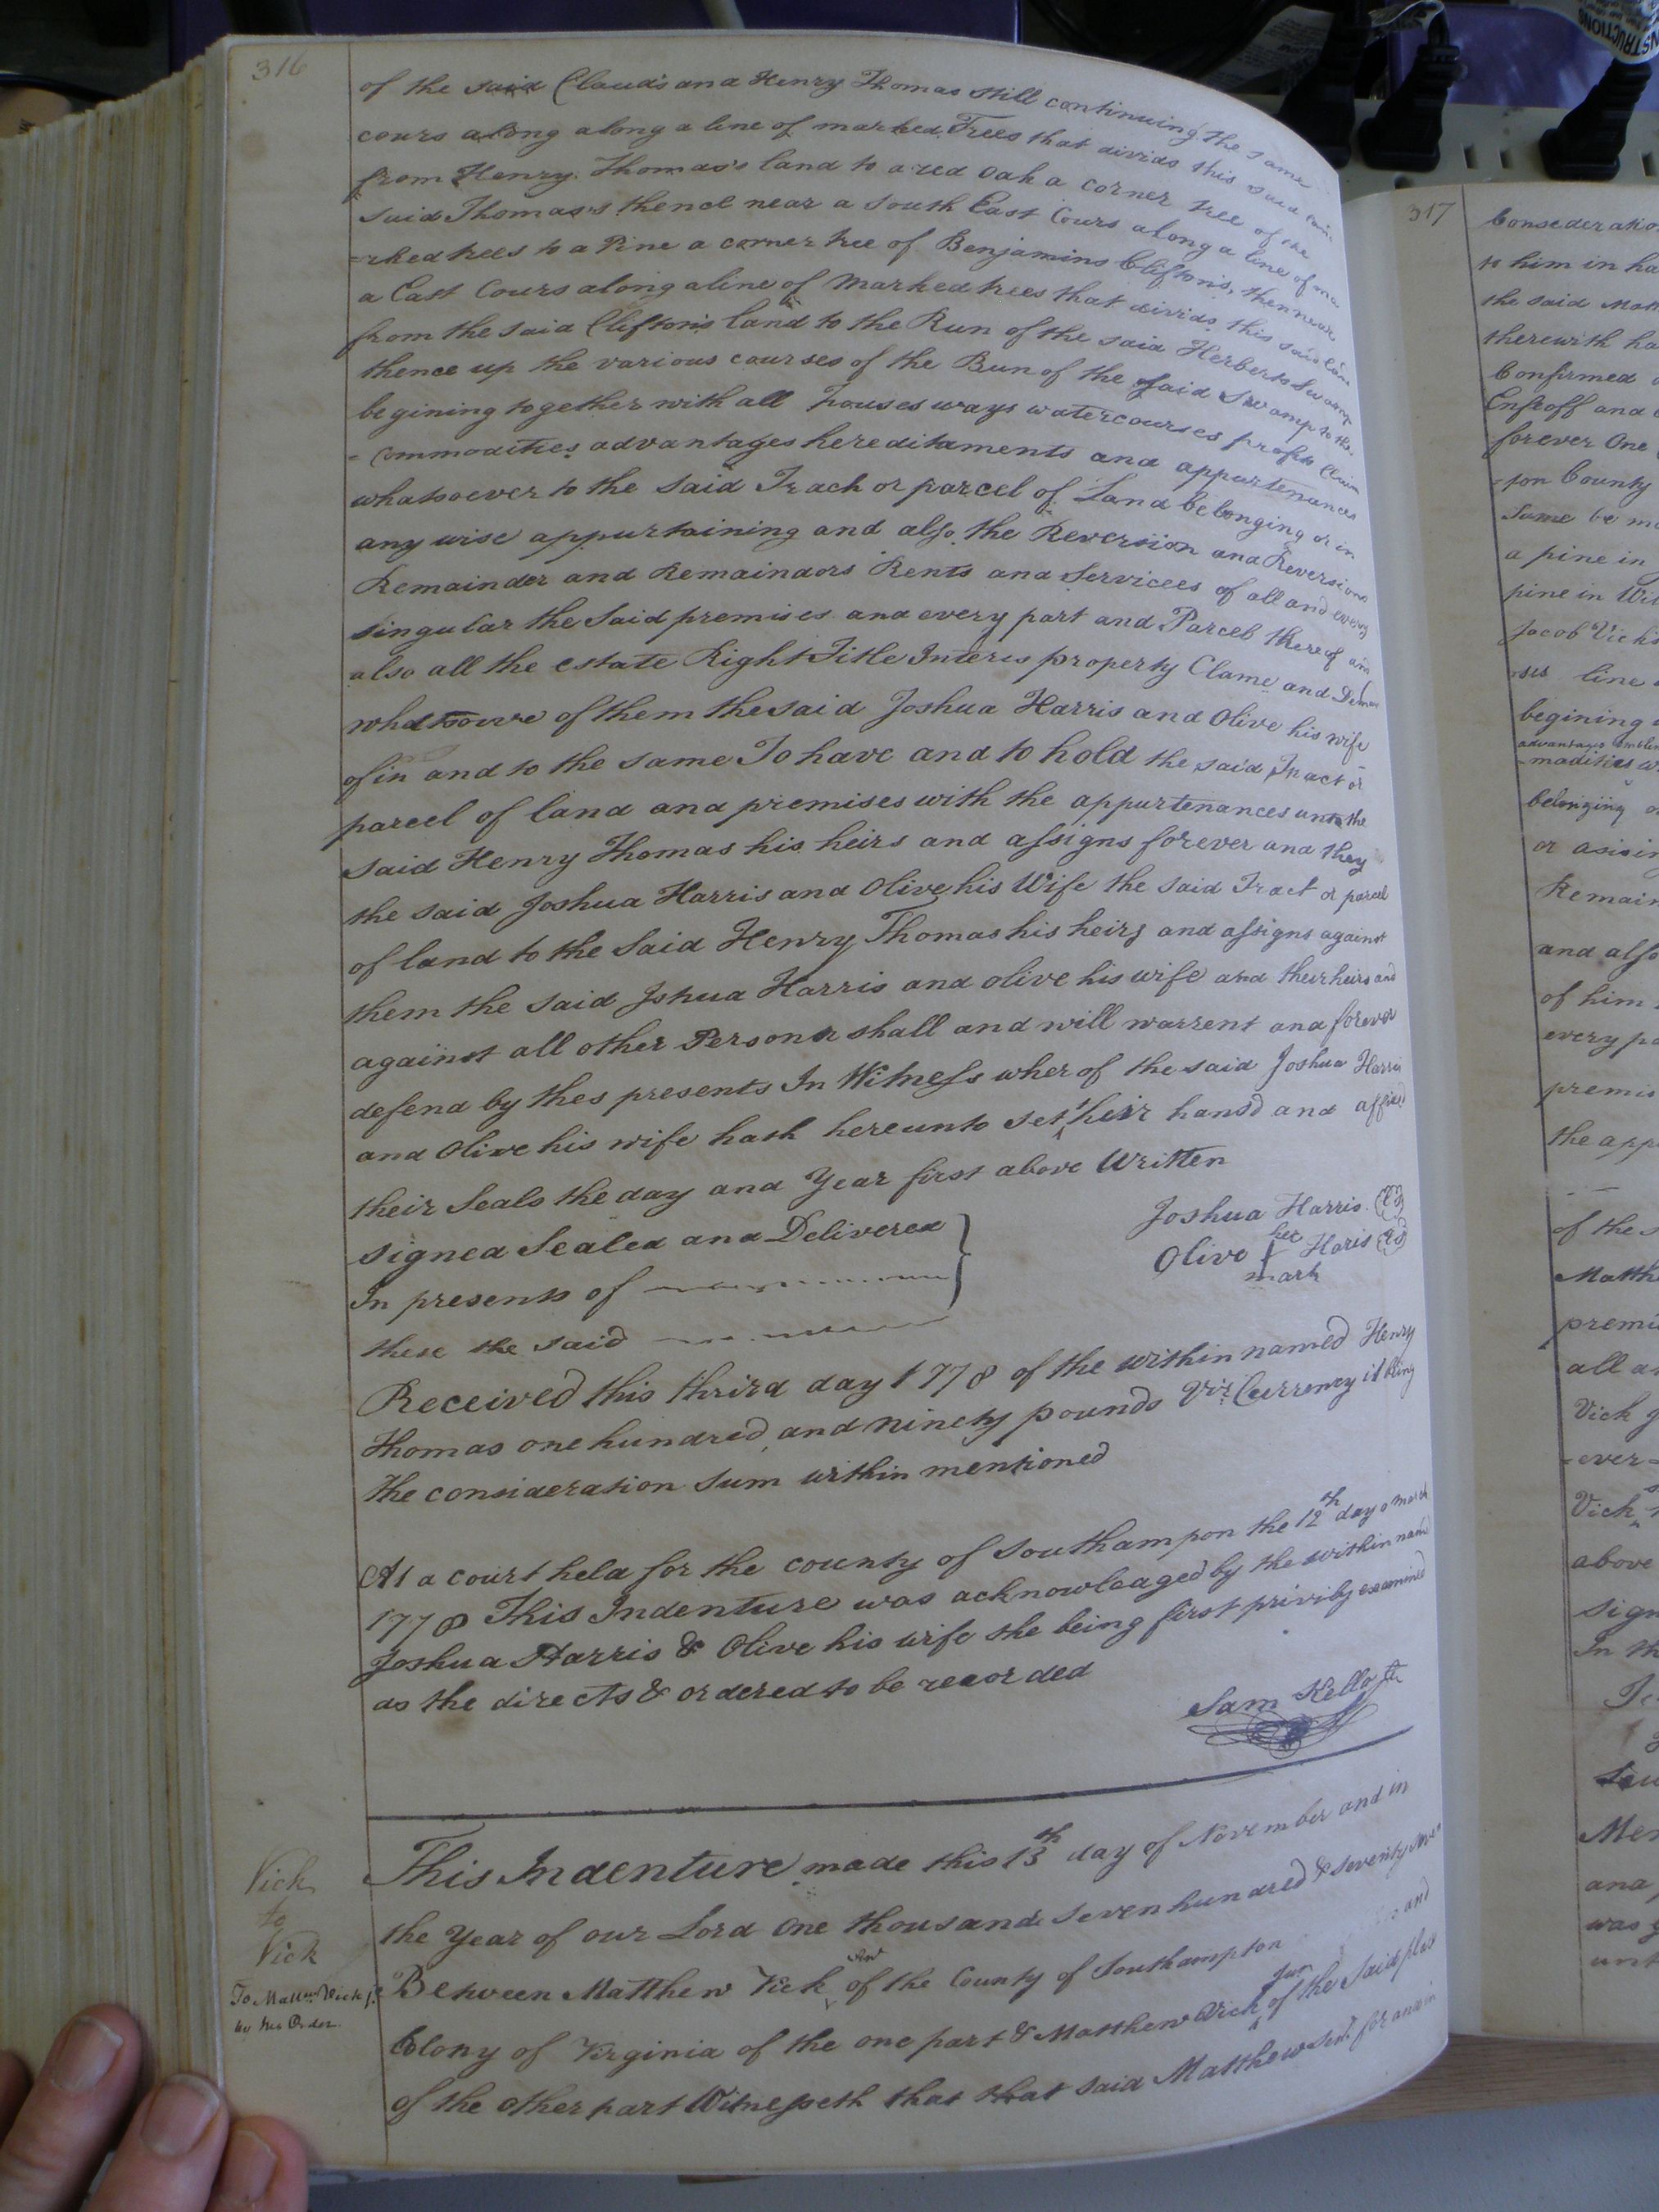 316
of the said Clauds and Henry Thomas still continuing the same
cours along along a line of marked Trees that divids this said
from Henry Thomas's land to a red Oak a corner tree of the
said Thomas's thence near a South East Cours along a line of ma
=rked trees to a Pine a corner tree of Benjamins Clifton's, then near
a East Cours along a line of Marked trees that divids this said
from the said Clifton's land to the Run of the said Herberts Swamp
thence up the various courses of the Run of the said Swamp to the
begining together with all houses ways watercourses profits
= commodities advantages hereditaments and appurtenances
whatsoever to the said Track or parcel of Land belonging or in
any wise appurtaining and also the Reversion and Reversions
Remainder and Remaindors Rents and Servicees of all and every
singular the Said premises and every part and Parcel thereof and
also all the estate Right Title Interes property Clame and
whatsowre of them the said Joshua Harris and Olive his wife
of in and to the same To have and to hold the said Tract or
parcel of land and premises with the appurtenances unto the
said Henry Thomas his heirs and assigns forever and they
the said Joshua Harris and Olive his Wife the said Tract or parcel
of land to the Said Henry Thomas his heirs and assigns against
them the said Joshua Harris and olive his wife and their heirs and
against all other Persons shall and will warrent and forever
defend by thes presents In Witness wher of the said Joshua Harris
and Olive his wife hath hereunto set their hansd and affixed
their Seals the day and Year first above Written
signed Sealed and Delivered
In presents of
these the said
Joshua Harris (LS)
her
Olive + Haris (LS)
mark
Received this thrird day 1778 of the within named Henry
Thomas one hundred and ninety pounds Vir. Currency it being
the consideration Sum within mentioned
At a court held for the county of Southampon the 12th day o March
1778 This Indenture was acknowleaged by the within named
Joshua Harris & Olive his wife she being first priviby examined
as the directs & ordered to be recorded
Sam Kello
Vick
to
Vick
by his Order.
This Indenture made this 13th day of November and in
the Year of our Lord One thousand Seven hundred & Seventy
Between Matthew Vick of the County of Southampton and
Colony of Virginia of the one part & Matthew Vick Junr of the Said place
of the other part Witnesseth that that said Matthew Senr for and in
317
Consederation
to him in
the said
therewith
Confirmed
Enfeoff and
forever One
County
Same be
a pine in
pine in
Jacob Vick's
line
begining
advantages
=madities
belonging
or
Remain
and also
of him
every
premis
the app
of the
Matth
premi
all
Vick
=ever
Vick
above
sign
In
and
was
unt